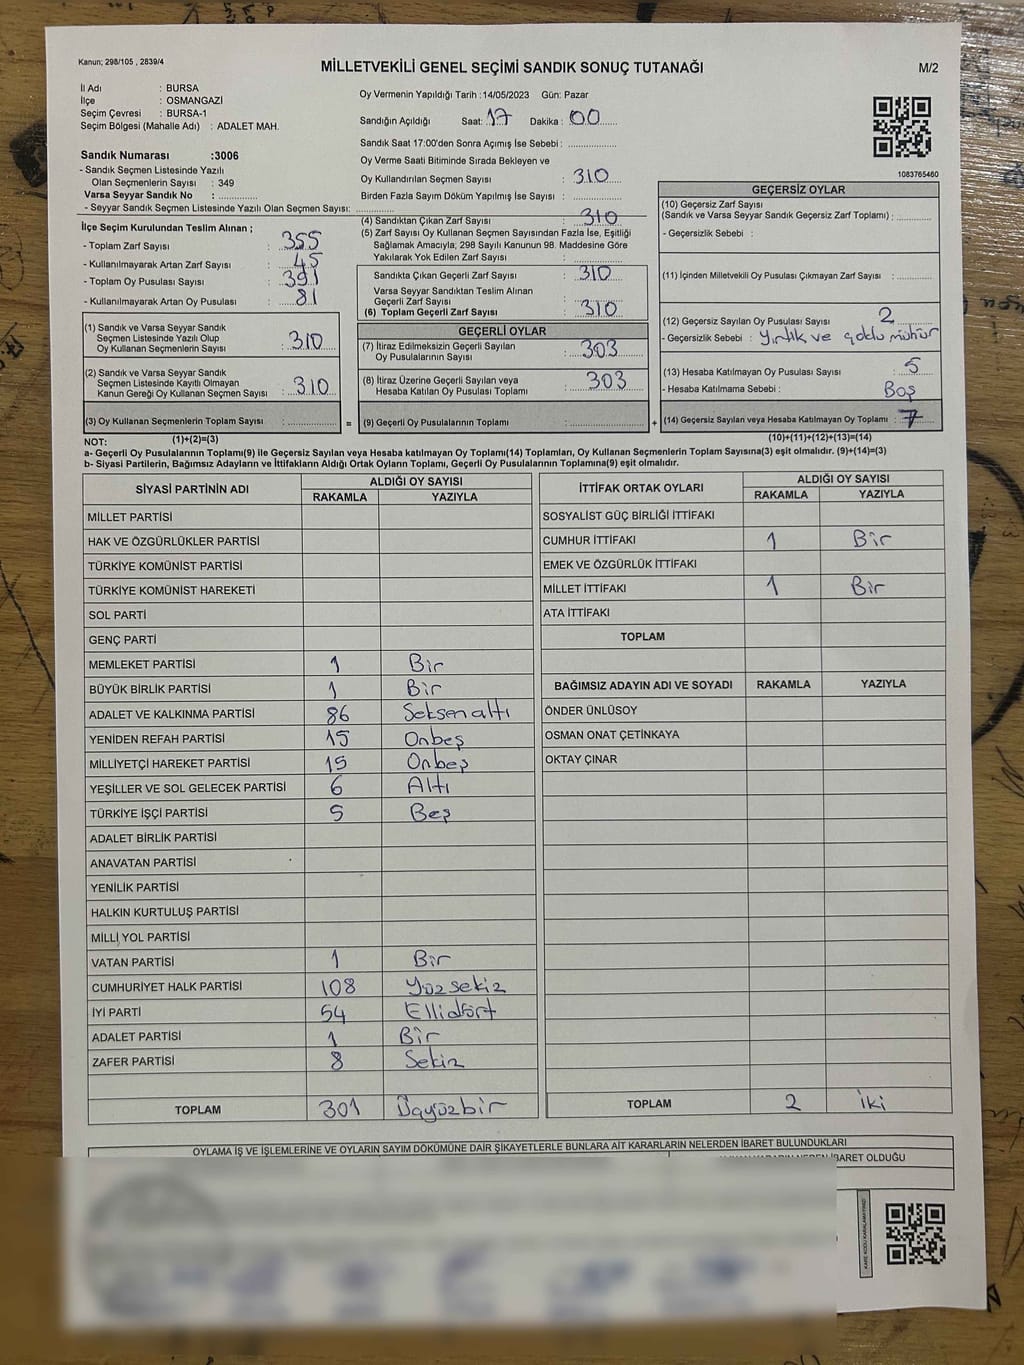 Kanun; 298/105 , 2839/4
MİLLETVEKİLİ GENEL SEÇİMİ SANDIK SONUÇ TUTANAĞI
M/2
İl Adı : BURSA
İlçe : OSMANGAZİ
Seçim Çevresi : BURSA-1
Seçim Bölgesi (Mahalle Adı) : ADALET MAH.
Sandık Numarası :3006
- Sandık Seçmen Listesinde Yazılı
Olan Seçmenlerin Sayısı : 349
Varsa Seyyar Sandık No :
- Seyyar Sandık Seçmen Listesinde Yazılı Olan Seçmen Sayısı:
İlçe Seçim Kurulundan Teslim Alınan ;
- Toplam Zarf Sayısı : 355
- Kullanılmayarak Artan Zarf Sayısı : 45
- Toplam Oy Pusulası : 391
- Kullanılmayarak Artan Oy Pusulası : 81
(1) Sandık ve Varsa Seyyar Sandık
Seçmen Listesinde Yazılı Olup
Oy Kullanan Seçmenlerin Sayısı : 310
(2) Sandık ve Varsa Seyyar Sandık
Seçmen Listesinde Kayıtlı Olmayan
Kanun Gereği Oy Kullanan Seçmen Sayısı : 310
(3) Oy Kullanan Seçmenlerin Toplam Sayısı :
Oy Vermenin Yapıldığı Tarih :14/05/2023 Gün: Pazar
Sandığın Açıldığı Saat: 17 Dakika : 00
Sandık Saat 17:00'den Sonra Açımış İse Sebebi :
Oy Verme Saati Bitiminde Sırada Bekleyen ve
Oy Kullandırılan Seçmen Sayısı : 310
Birden Fazla Sayım Döküm Yapılmış İse Sayısı :
(4) Sandıktan Çıkan Zarf Sayısı : 310
(5) Zarf Sayısı Oy Kullanan Seçmen Sayısından Fazla İse, Eşitliği
Sağlamak Amacıyla; 298 Sayılı Kanunun 98. Maddesine Göre
Yakılarak Yok Edilen Zarf Sayısı :
Sandıkta Çıkan Geçerli Zarf Sayısı : 310
Varsa Seyyar Sandıktan Teslim Alınan
Geçerli Zarf Sayısı :
(6) Toplam Geçerli Zarf Sayısı : 310
GEÇERLİ OYLAR
(7) İtiraz Edilmeksizin Geçerli Sayılan
Oy Pusulalarının Sayısı : 303
(8) İtiraz Üzerine Geçerli Sayılan veya
Hesaba Katılan Oy Pusulası Toplamı : 303
= (9) Geçerli Oy Pusulalarının Toplamı : +
1083765460
GEÇERSİZ OYLAR
(10) Geçersiz Zarf Sayısı
(Sandık ve Varsa Seyyar Sandık Geçersiz Zarf Toplamı) :
- Geçersizlik Sebebi :
(11) İçinden Milletvekili Oy Pusulası Çıkmayan Zarf Sayısı :
(12) Geçersiz Sayılan Oy Pusulası Sayısı : 2
- Geçersizlik Sebebi : Yırtık ve çoklu mühür
(13) Hesaba Katılmayan Oy Pusulası Sayısı : 5
- Hesaba Katılmama Sebebi : Boş
(14) Geçersiz Sayılan veya Hesaba Katılmayan Oy Toplamı : 7
NOT: (1)+(2)=(3)
(10)+(11)+(12)+(13)=(14)
a- Geçerli Oy Pusulalarının Toplamı(9) ile Geçersiz Sayılan veya Hesaba katılmayan Oy Toplamı(14) Toplamları, Oy Kullanan Seçmenlerin Toplam Sayısına(3) eşit olmalıdır. (9)+(14)=(3)
b- Siyasi Partilerin, Bağımsız Adayların ve İttifakların Aldığı Ortak Oyların Toplamı, Geçerli Oy Pusulalarının Toplamına(9) eşit olmalıdır.
SİYASİ PARTİNİN ADI ALDIĞI OY SAYISI
RAKAMLA YAZIYLA
MİLLET PARTİSİ
HAK VE ÖZGÜRLÜKLER PARTİSİ
TÜRKİYE KOMÜNİST PARTİSİ
TÜRKİYE KOMÜNİST HAREKETİ
SOL PARTİ
GENÇ PARTİ
MEMLEKET PARTİSİ 1 Bir
BÜYÜK BİRLİK PARTİSİ 1 Bir
ADALET VE KALKINMA PARTİSİ 86 Seksenaltı
YENİDEN REFAH PARTİSİ 15 Onbeş
MİLLİYETÇİ HAREKET PARTİSİ 15 Onbeş
YEŞİLLER VE SOL GELECEK PARTİSİ 6 Altı
TÜRKİYE İŞÇİ PARTİSİ 5 Beş
ADALET BİRLİK PARTİSİ
ANAVATAN PARTİSİ
YENİLİK PARTİSİ
HALKIN KURTULUŞ PARTİSİ
MİLLİ YOL PARTİSİ
VATAN PARTİSİ 1 Bir
CUMHURİYET HALK PARTİSİ 108 Yüzsekiz
İYİ PARTİ 54 Ellidört
ADALET PARTİSİ 1 Bir
ZAFER PARTİSİ 8 Sekiz
TOPLAM 301 Üçyüzbir
İTTİFAK ORTAK OYLARI ALDIĞI OY SAYISI
RAKAMLA YAZIYLA
SOSYALİST GÜÇ BİRLİĞİ İTTİFAKI
CUMHUR İTTİFAKI 1 Bir
EMEK VE ÖZGÜRLÜK İTTİFAKI
MİLLET İTTİFAKI 1 Bir
ATA İTTİFAKI
TOPLAM
BAĞIMSIZ ADAYIN ADI VE SOYADI RAKAMLA YAZIYLA
ÖNDER ÜNLÜSOY
OSMAN ONAT ÇETİNKAYA
OKTAY ÇINAR
TOPLAM 2 iki
OYLAMA İŞ VE İŞLEMLERİNE VE OYLARIN SAYIM DÖKÜMÜNE DAİR ŞİKAYETLERLE BUNLARA AİT KARARLARIN NELERDEN İBARET BULUNDUKLARI
İBARET OLDUĞU